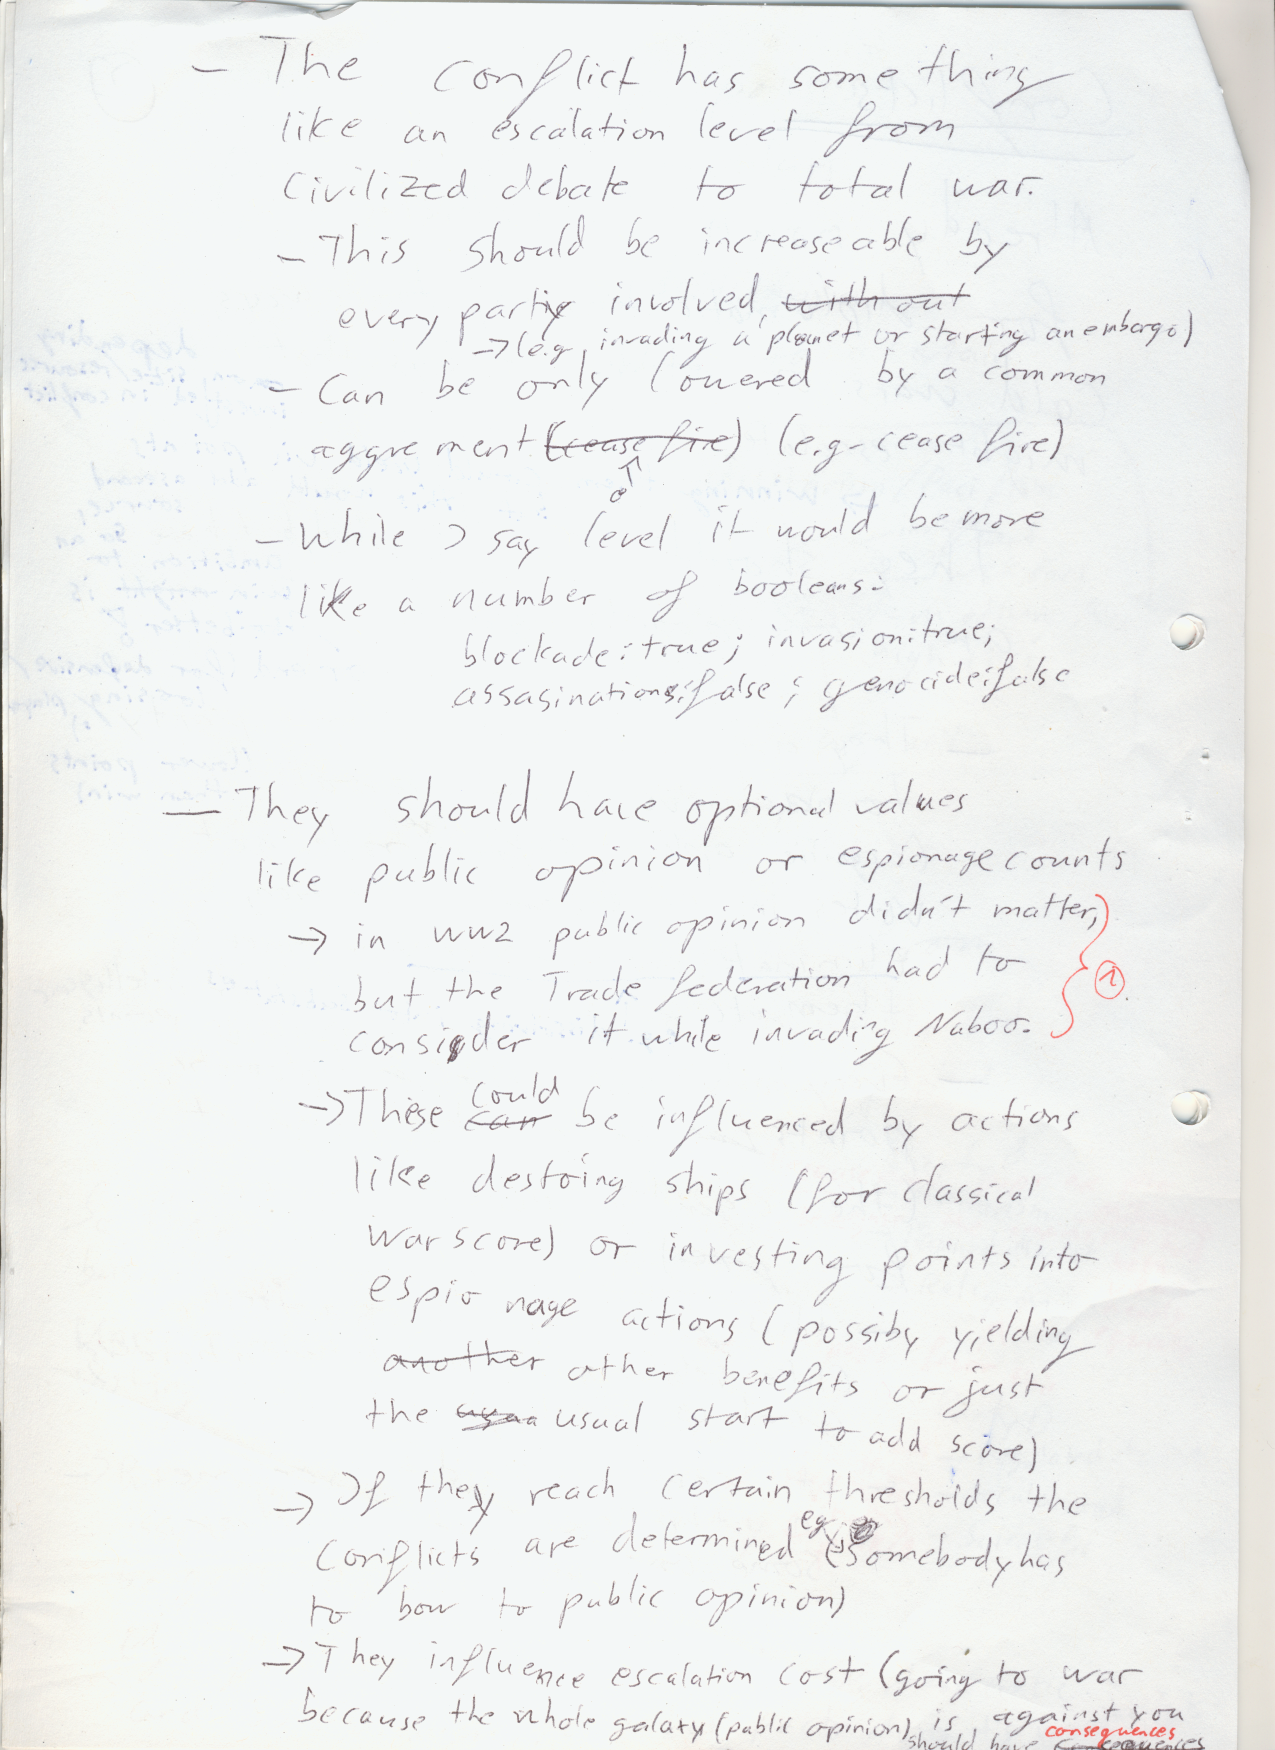 - The conflict has something
like an escalation level from
civilized debate to total war.
- This should be increaseable by
every party involved, without
→ (e.g. invading a planet or starting an embargo)
- Can be only lowered by a common
aggrement (cease fire) (e.g. cease fire)
- While I say level it would be more
like a number of booleans:
blockade:true; invasion:true;
assasinations:false; genocide:false
- They should have optional values
like public opinion or espionage counts
→ in WW2 public opinion didn't matter,
but the Trade federation had to
consider it while invading Naboo.
1
→ These can could be influenced by actions
like destoing ships (for classical
warscore) or investing points into
espionage actions (possiby yielding
another other benefits or just
the usual start to add score)
→ If they reach certain thresholds the
conflicts are determined eg. (somebody has
to bow to public opinion)
→ They influence escalation cost (going to war
because the whole galaxy (public opinion) is against you
should have consequences